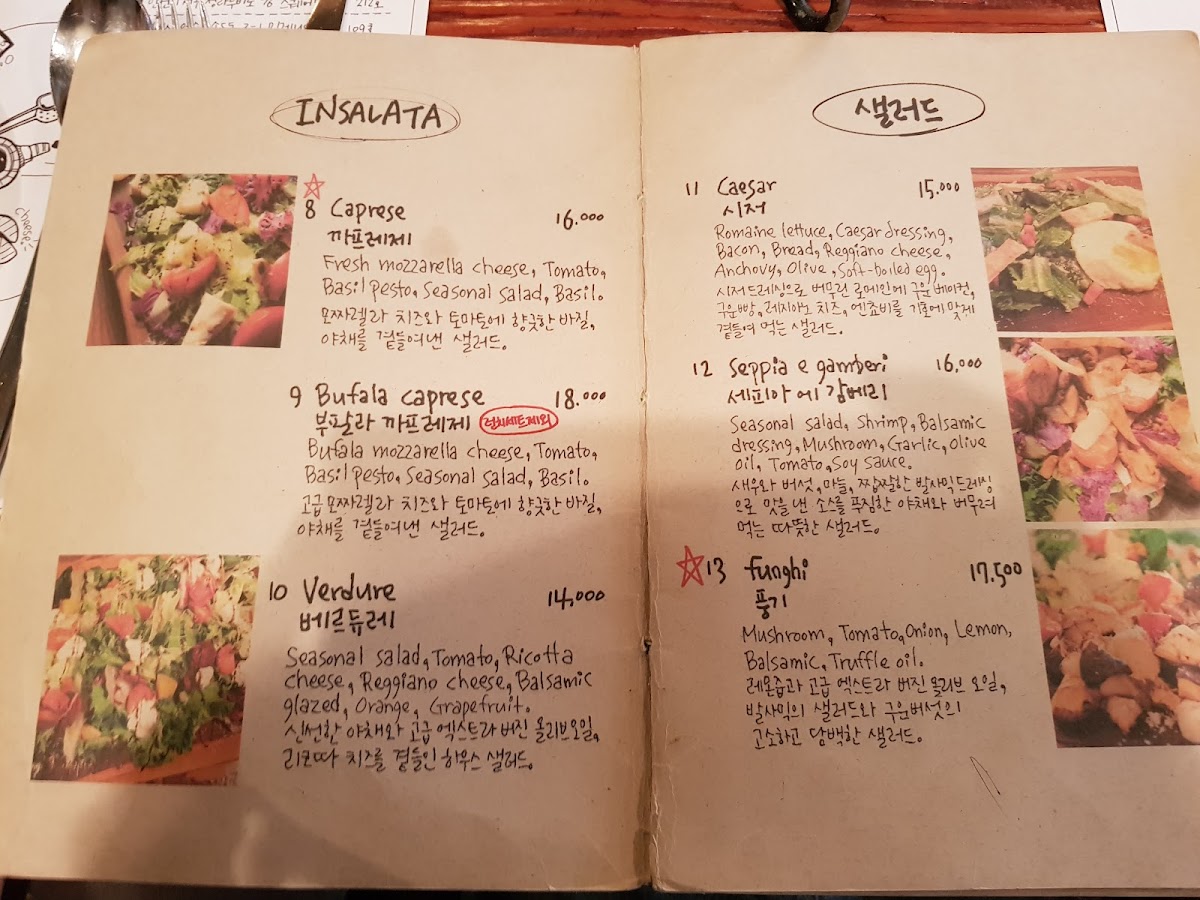 212호
109호
cheese!
INSALATA
8 Caprese 16.000
까프레제
Fresh mozzarella cheese, Tomato,
Basil pesto, Seasonal salad, Basil.
모짜렐라 치즈와 토마토에 향긋한 바질,
야채를 곁들여낸 샐러드.
9 Bufala caprese 18.000
부팔라 까프레제 런치세트제외
Bufala mozzarella cheese, Tomato,
Basil pesto, Seasonal salad, Basil.
고급 모짜렐라 치즈와 토마토에 향긋한 바질,
야채를 곁들여낸 샐러드.
10 Verdure 14,000
베르듀레
Seasonal salad, Tomato, Ricotta
cheese, Reggiano cheese, Balsamic
glazed, Orange, Grapefruit.
신선한 야채와 고급 엑스트라 버진 올리브오일,
리코따 치즈를 곁들인 하우스 샐러드.
샐러드
11 Caesar 15.000
시저
Romaine lettuce, Caesar dressing,
Bacon, Bread, Reggiano cheese,
Anchovy, Olive, Soft-boiled egg.
시저드레싱으로 버무린 로메인에 구운 베이컨,
구운빵, 레지아노 치즈, 엔쵸비를 기호에 맞게
곁들여 먹는 샐러드.
12 Seppia e gamberi 16,000
세피아 에 감베리
Seasonal salad, Shrimp, Balsamic
dressing, Mushroom, Garlic, Olive
oil, Tomato, Soy sauce.
새우와 버섯, 마늘, 짭짤한 발사믹드레싱
으로 맛을 낸 소스를 푸짐한 야채와 버무려
먹는 따뜻한 샐러드.
13 funghi 17.500
풍기
Mushroom, Tomato, Onion, Lemon,
Balsamic, Truffle oil.
레몬즙과 고급 엑스트라 버진 올리브 오일,
발사믹의 샐러드와 구운버섯의
고소하고 담백한 샐러드.